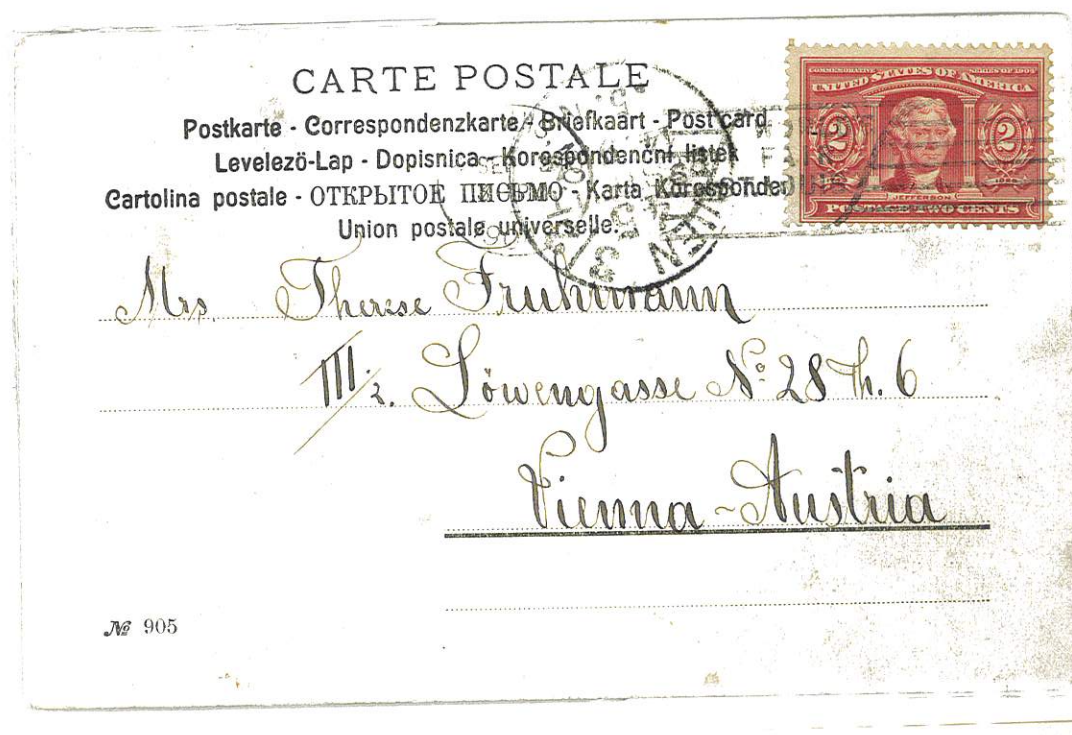 CARTE POSTALE
Postkarte - Correspondenzkarte - Briefkaart - Post card
Levelező-Lap - Dopisnica - Korespondenční lístek
Cartolina postale - ОТКРЫТОЕ ПИСЬМО - Karta Korespondenc
Union postale universelle.
COMMEMORATIVE SERIES OF 1904
UNITED STATES OF AMERICA
2 2
JEFFERSON
POSTAGE TWO CENTS
WIEN 3
Mrs. Therese Fruhmann
III/2. Löwengasse No. 28 Th. 6
Vienna - Austria
No 905